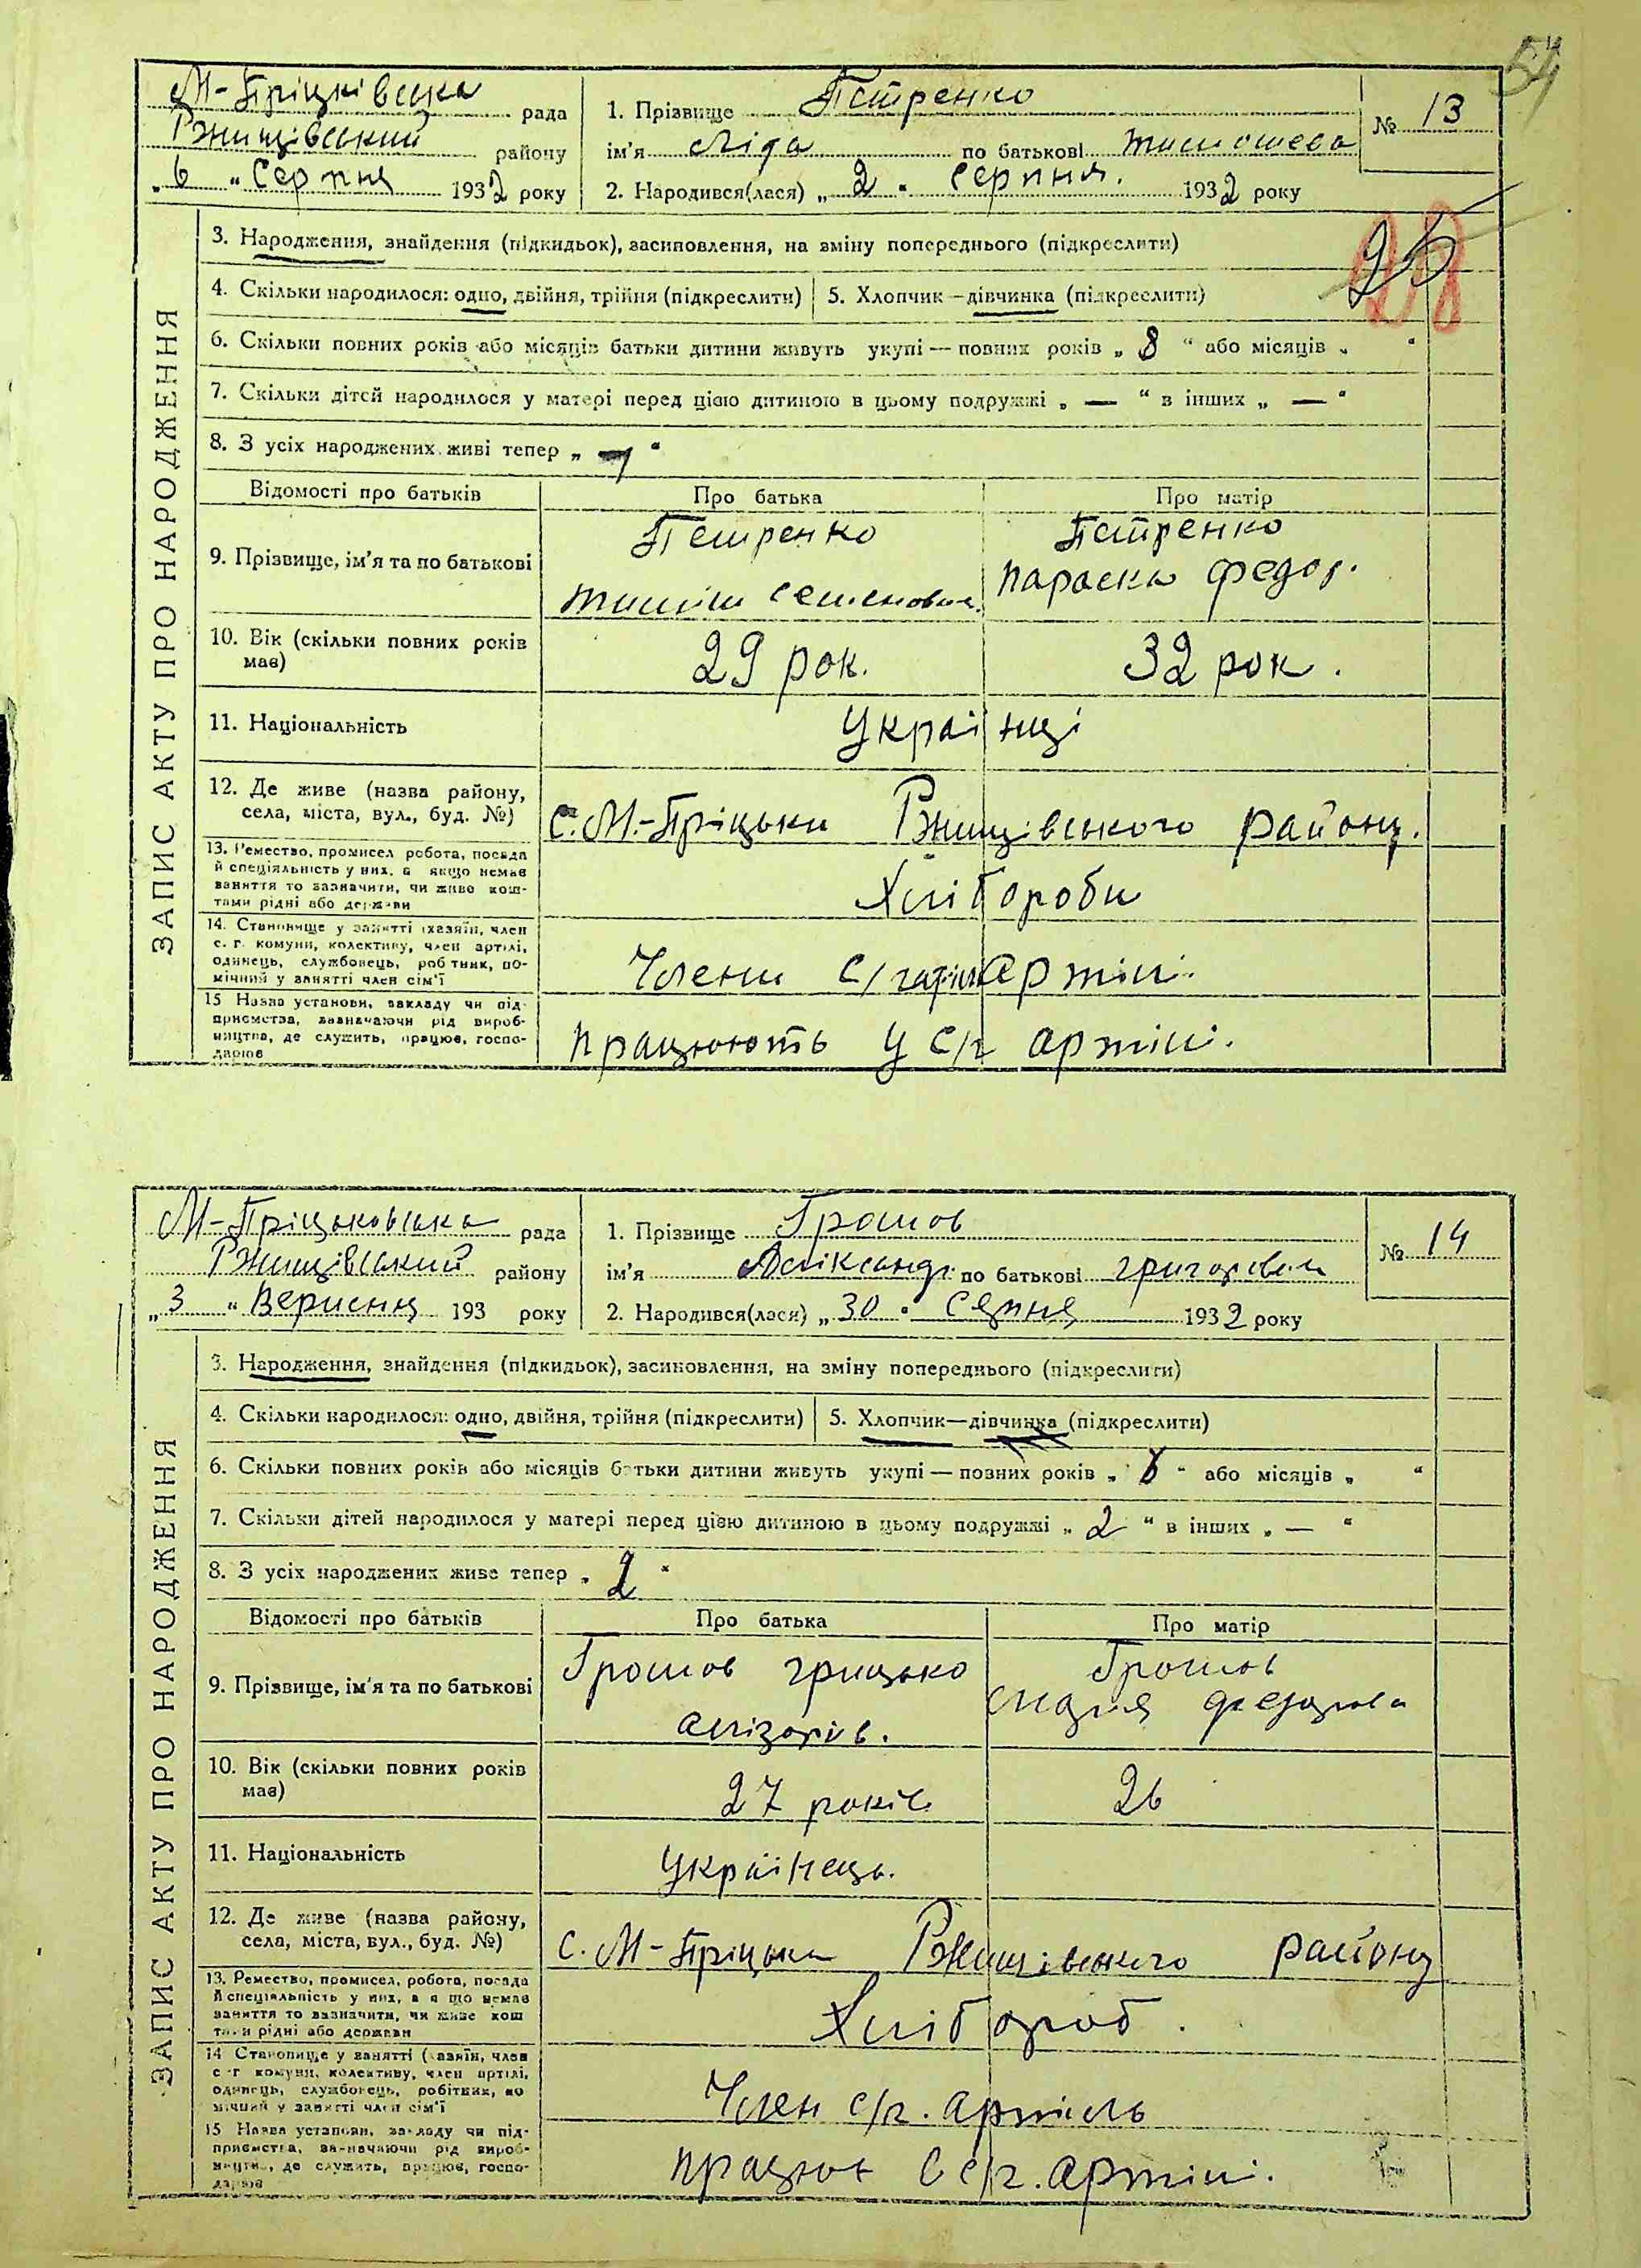 54
М-Пріцківська рада
Ржищівський району
„6“ Серпня 1932 року
1. Прізвище Петренко
ім'я Ліда по батькові Тимошева
№ 13
2. Народився(лася) „2“ Серпня. 1932 року
25
28
ЗАПИС АКТУ ПРО НАРОДЖЕННЯ
3. Народження, знайдення (підкидьок), засиновлення, на зміну попереднього (підкреслити)
4. Скільки народилося: одно, двійня, трійня (підкреслити)
5. Хлопчик—дівчинка (підкреслити)
6. Скільки повних років або місяців батьки дитини живуть укупі — повних років „8“ або місяців „ “
7. Скільки дітей народилося у матері перед цією дитиною в цьому подружжі „—“ в інших „—“
8. З усіх народжених живі тепер „ “
Відомості про батьків
Про батька
Про матір
9. Прізвище, ім'я та по батькові
Петренко
Тиміш Семенович.
Петренко
Параска Федор.
10. Вік (скільки повних років має)
29 рок.
32 рок.
11. Національність
Українці
12. Де живе (назва району,
села, міста, вул., буд. №)
С. М.-Пріцьки Ржищівського району.
13. Ремество, промисел робота, посада
й спеціяльність у них, а якщо немає
заняття то зазначити, чи живе кош-
тами рідні або держави
Хлібороби
14. Становище у занятті (хазяїн, член
с. г. комуни, колективу, член артілі,
одинець, службовець, робітник, по-
мічний у занятті член сім'ї
Члени с/г артілі.
15 Назва установи, закладу чи під-
приємства, зазначаючи рід вироб-
ництва, де служить, працює, госпо-
дарює
Працюють у с/г артілі.
М-Пріцьковська рада
Ржищівський району
„3“ Вересня 193 року
1. Прізвище Громов
ім'я Аліксандр по батькові Григорович
№ 14
2. Народився(лася) „30“ Серпня 1932 року
ЗАПИС АКТУ ПРО НАРОДЖЕННЯ
3. Народження, знайдення (підкидьок), засиновлення, на зміну попереднього (підкреслити)
4. Скільки народилося: одно, двійня, трійня (підкреслити)
5. Хлопчик—дівчинка (підкреслити)
6. Скільки повних років або місяців батьки дитини живуть укупі — повних років „ “ або місяців „ “
7. Скільки дітей народилося у матері перед цією дитиною в цьому подружжі „2“ в інших „—“
8. З усіх народжених живе тепер „2“
Відомості про батьків
Про батька
Про матір
9. Прізвище, ім'я та по батькові
Громов Грицько
Громов
Марія Федорова
10. Вік (скільки повних років має)
27 років
26
11. Національність
Українець.
12. Де живе (назва району,
села, міста, вул., буд. №)
С. М-Пріцьки Ржищівського району
13. Ремество, промисел, робота, посада
й спеціяльність у них, а якщо немає
заняття то зазначити, чи живе кош
тами рідні або держави
Хлібороб.
14 Становище у занятті (хазяїн, член
с-г комуни, колективу, член артілі,
одинець, службовець, робітник, по
мічний у занятті член сім'ї
Член с/г. артіль
15 Назва установи, закладу чи під-
приємства, зазначаючи рід вироб-
ництва, де служить, працює, госпо-
дарює
Працює в с/г. артілі.